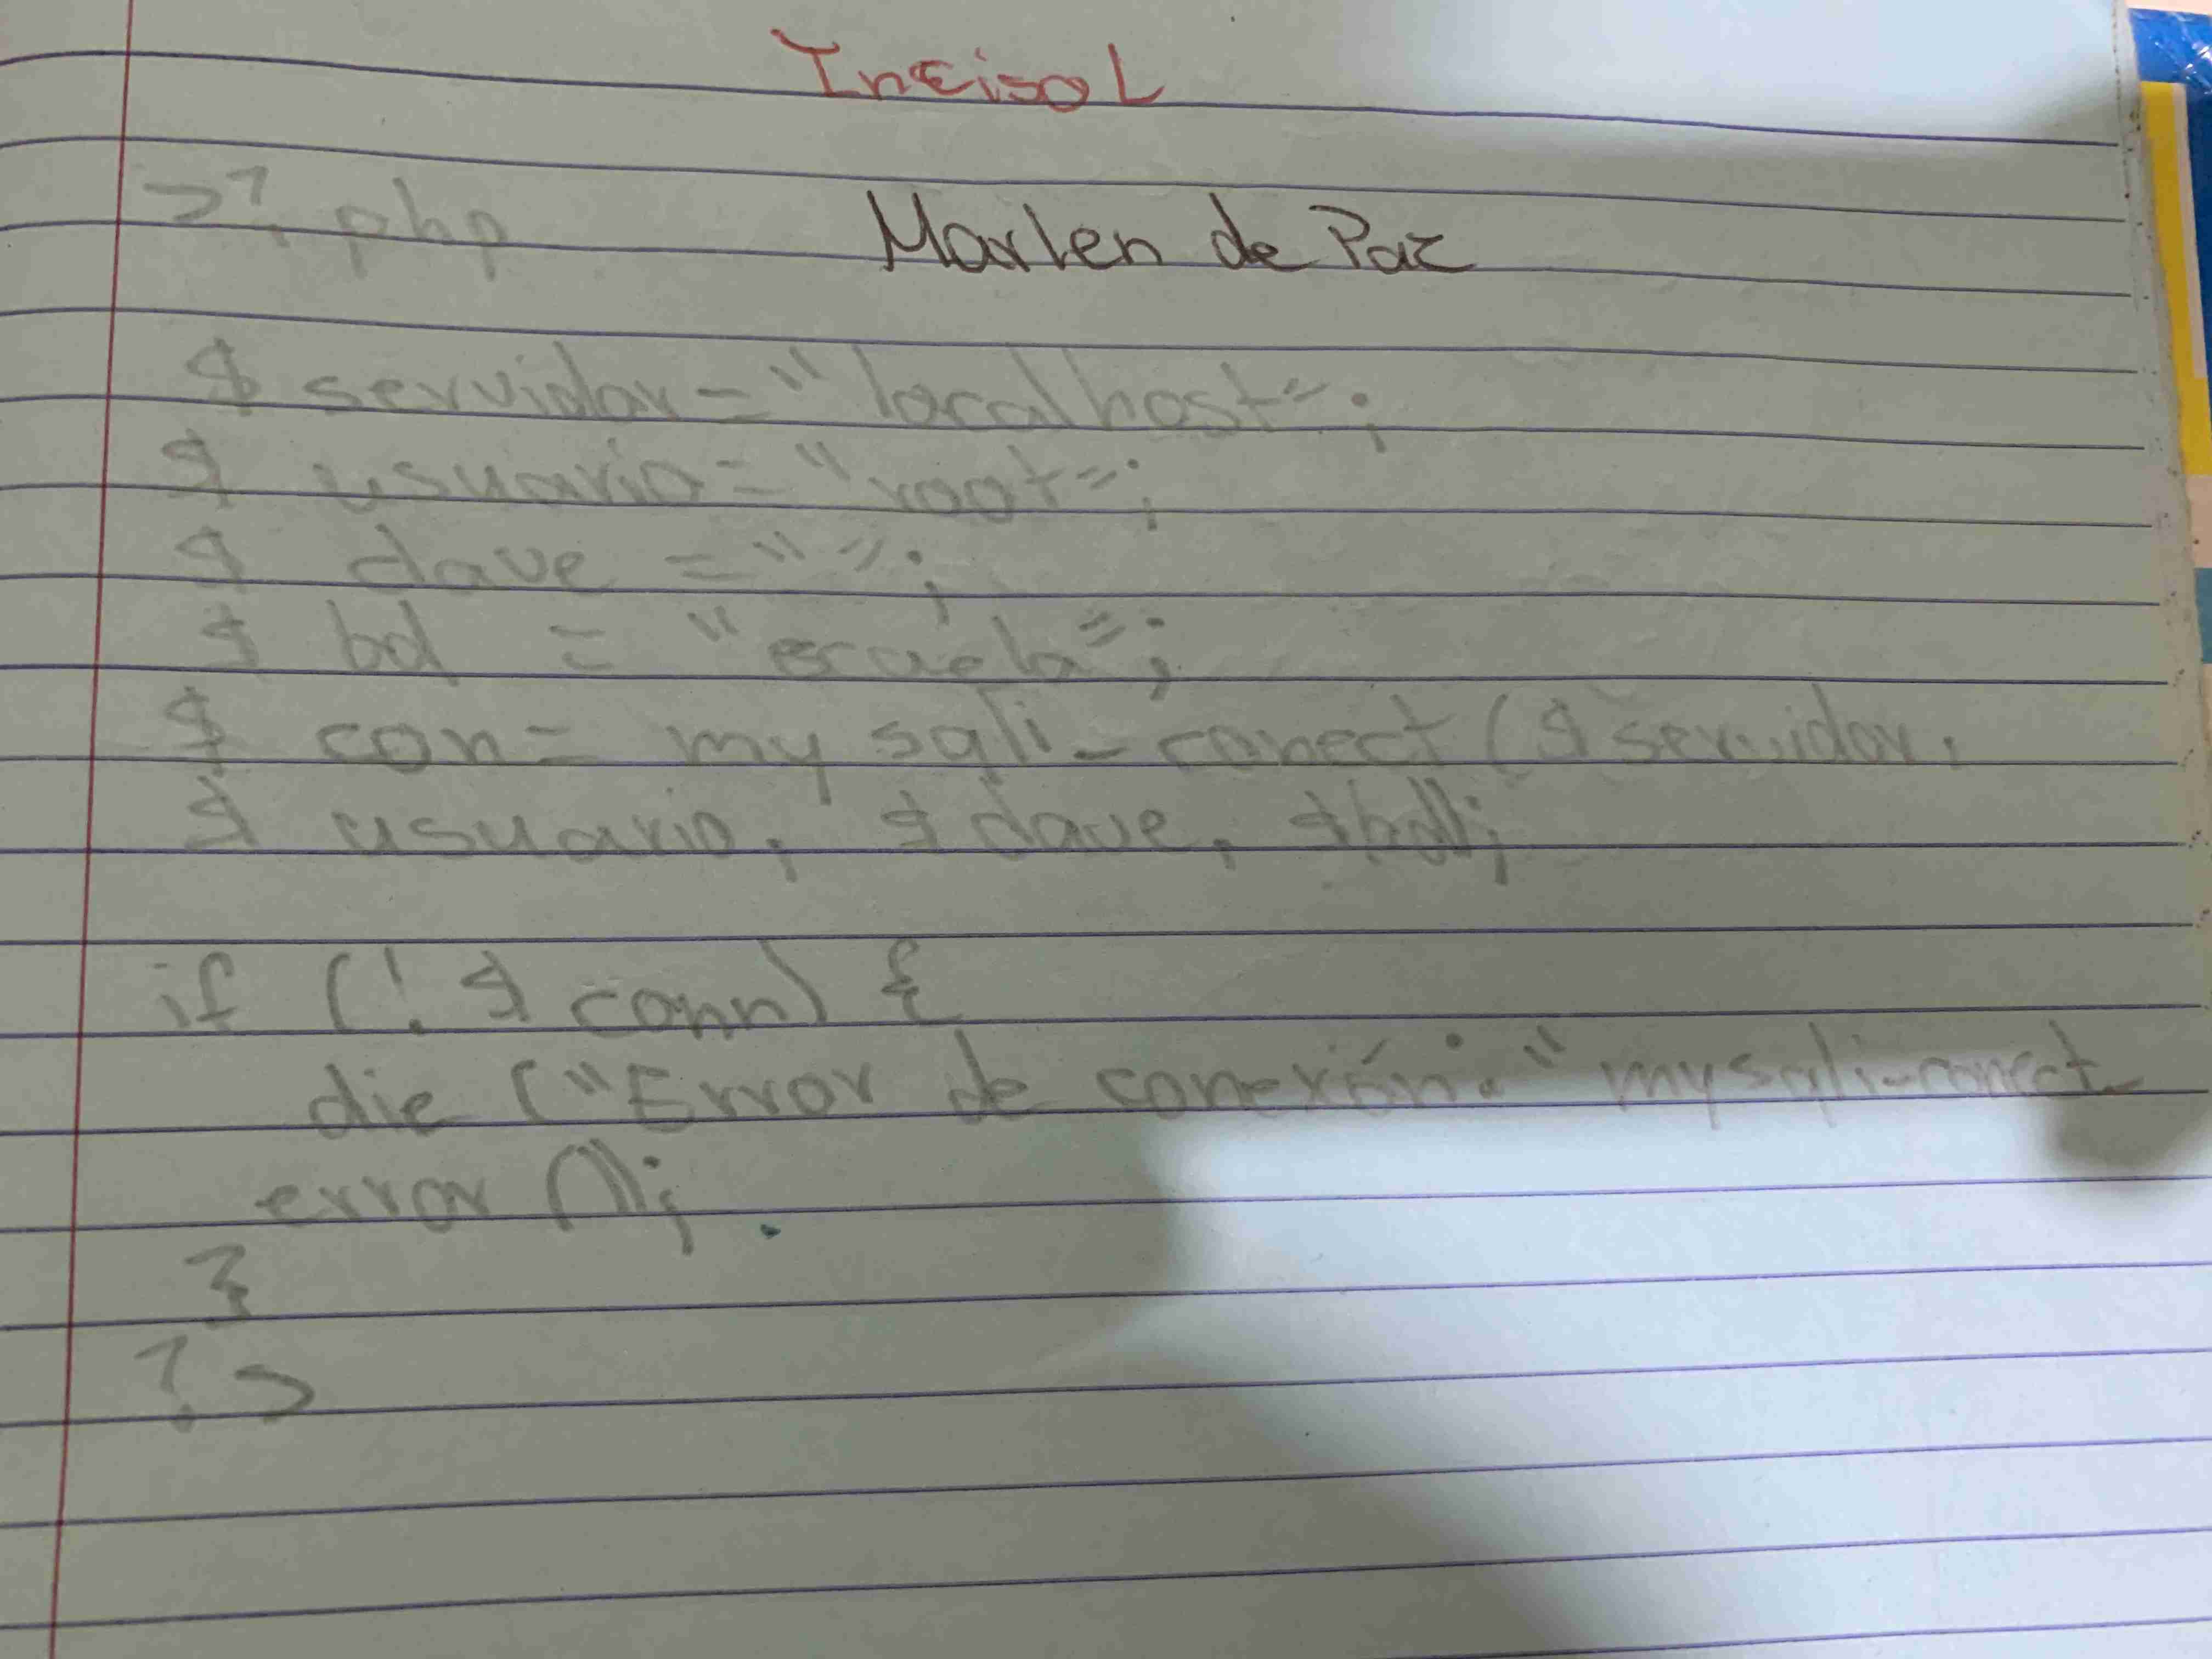 Inciso L
>?php
Marlen de Paz
$ servidor="localhost";
$ usuario="root";
$ clave ="";
$ bd = "escuela";
$ con= mysqli-conect($servidor,
$ usuario, $clave, $bd);
if (! $ conn) {
die ("Error de conexión:" mysqli-conect-
error ());
}
?>